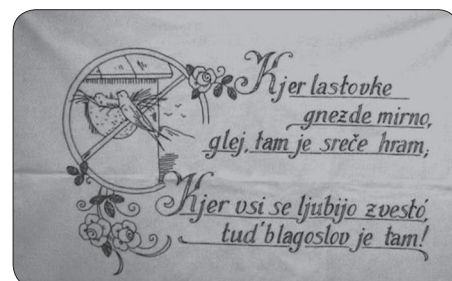 Kjer lastovke
gnezde mirno,
glej, tam je sreče hram;
Kjer vsi se ljubijo zvestó,
tud' blagoslov je tam!